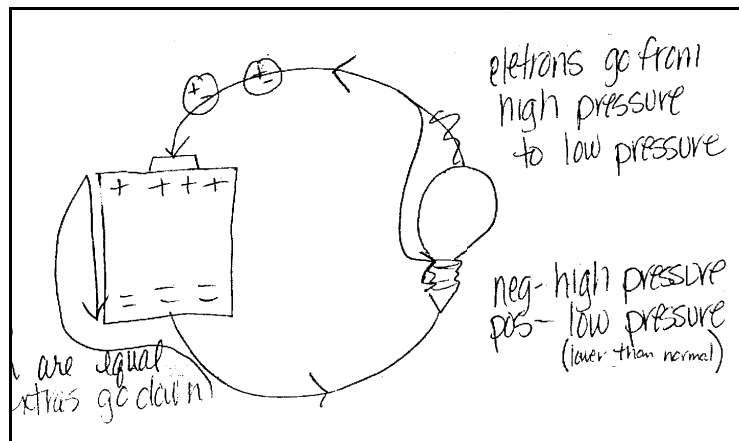 eletrons go from
high pressure
to low pressure
+ + + +
neg- high pressure
pos- low pressure
(lower than normal)
are equal
extras go down)